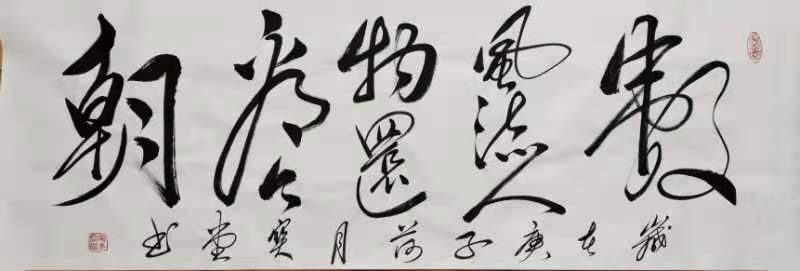 數風流人物還看今朝
歲在庚子荷月寶堂書